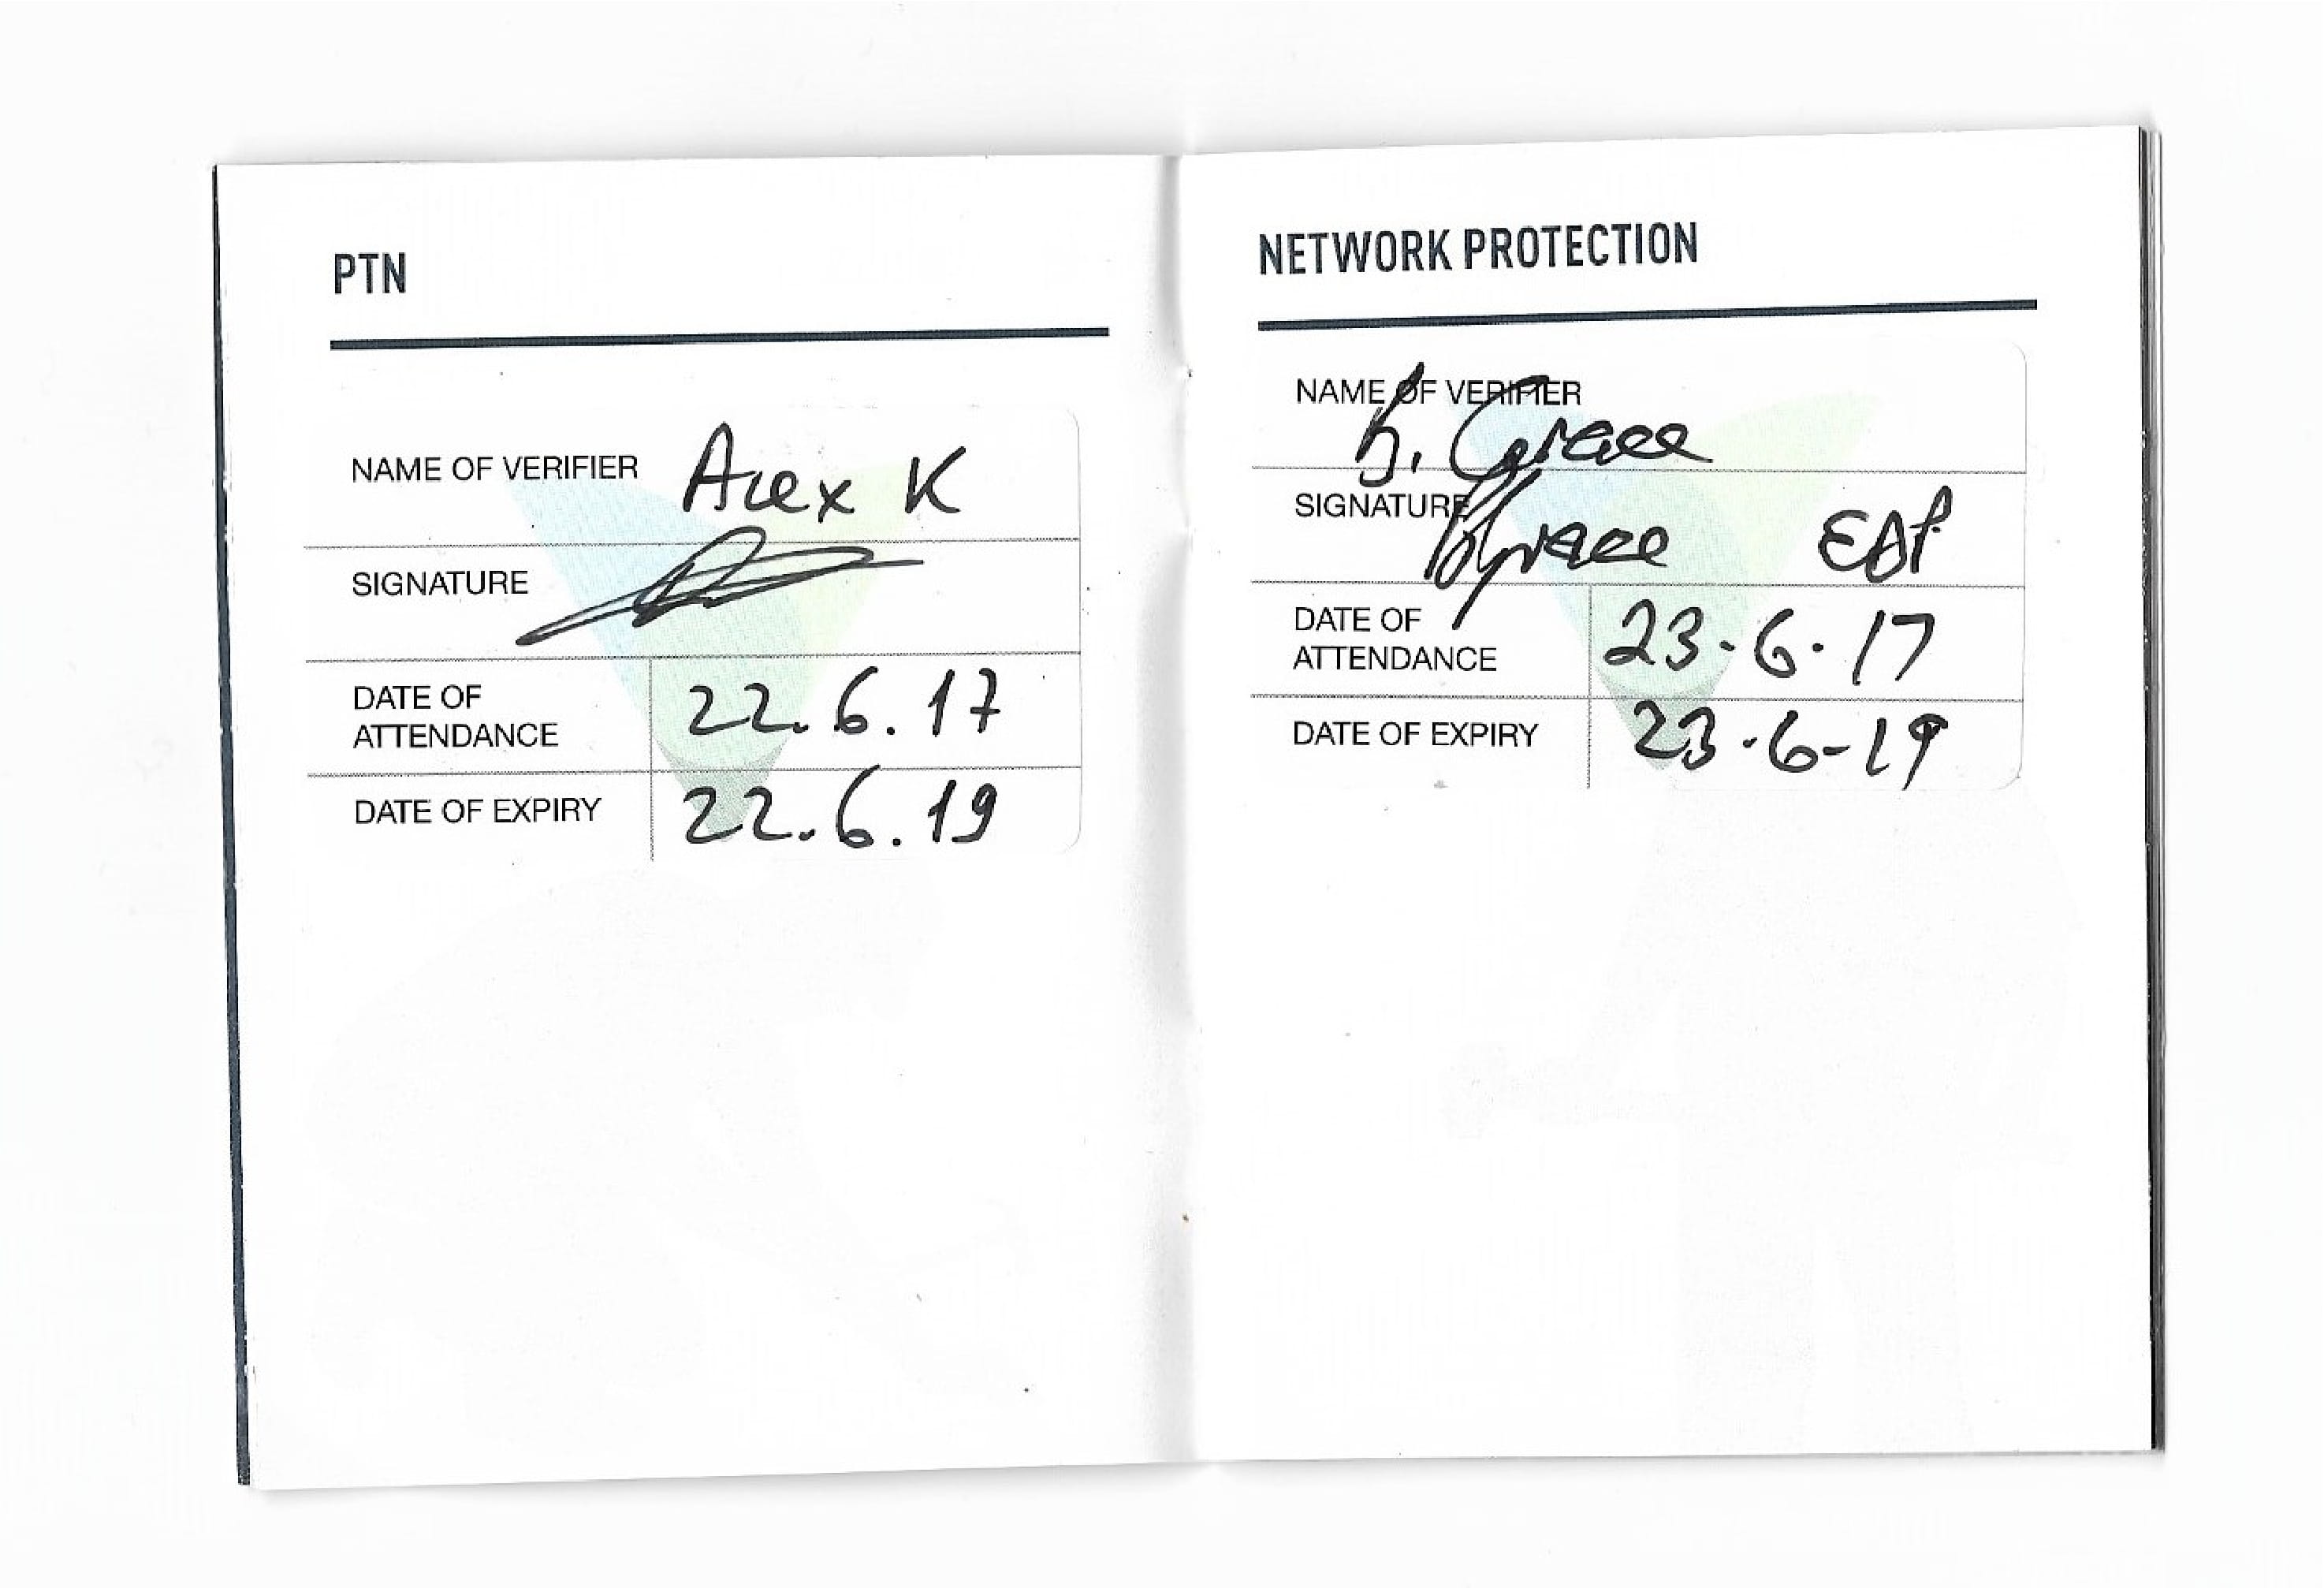 PTN
NAME OF VERIFIER Alex K
SIGNATURE
DATE OF
ATTENDANCE 22.6.17
DATE OF EXPIRY 22.6.19
NETWORK PROTECTION
NAME OF VERIFIER
Grace
SIGNATURE
Grace
DATE OF
ATTENDANCE 23-6-17
DATE OF EXPIRY 23-6-19